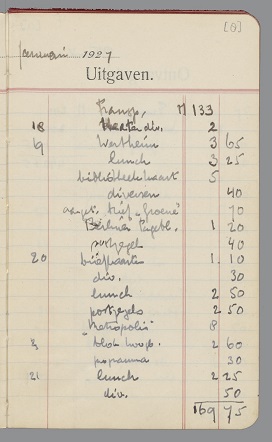 [6]
januari 1927
Uitgaven.
Transp. 133
18 div. 2
19 Wertheim 3 65
lunch 3 25
bibliotheek kaart 5
diversen 40
"Groene" 70
Berliner Tagebl. 1 20
postzegel 40
20 briefkaarten 1.10
div. 30
lunch 2 50
postzegels 2 50
"Metropolis" 8
2 60
programma 30
21 lunch 2 25
div. 50
169 75